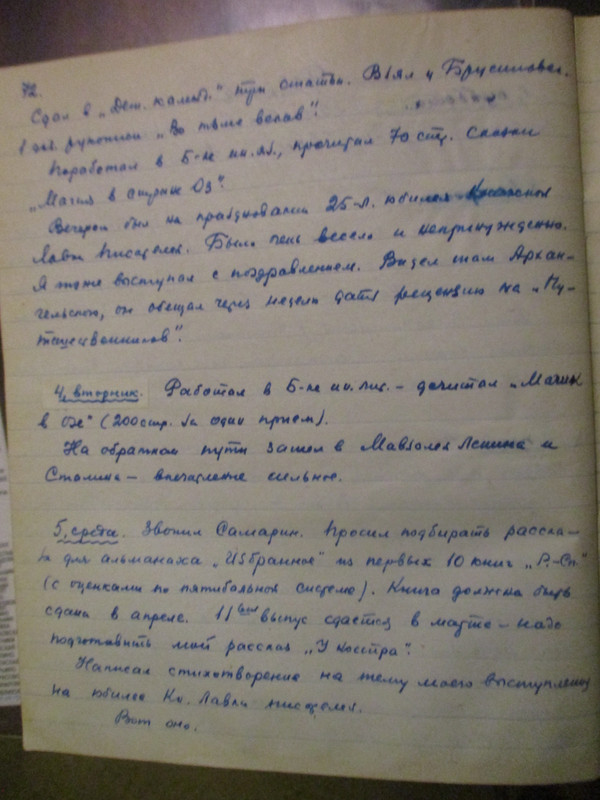 72.
Сдал в „Дет. календ." три статьи. Взял у Брусиловск.
1 экз. рукописи „Во тьме веков".
Поработал в Б-ке ин. яз., прочитал 70 стр. сказки
„Магия в стране Оз".
Вечером был на праздновании 25-л. юбилея Книжной
Лавки Писателей. Было очень весело и непринужденно.
Я тоже выступал с поздравлением. Видел там Архан-
гельского, он обещал через неделю дать рецензию на „Пу-
тешественников".
4, вторник. Работал в Б-ке ин. лит. – дочитал „Магию
в Оз" (200 стр. за один прием).
На обратном пути зашел в Мавзолей Ленина и
Сталина – впечатление сильное.
5, среда. Звонил Самарин. Просил подбирать расска-
зы для альманаха „Избранное" из первых 10 книг „Р.-Сп."
(с оценками по пятибальной системе). Книга должна быть
сдана в апреле. 11 выпуск сдается в марте – надо
подготовить мой рассказ „У костра".
Написал стихотворение на тему моего выступления
на юбилее Кн. Лавки писателей.
Вот оно.